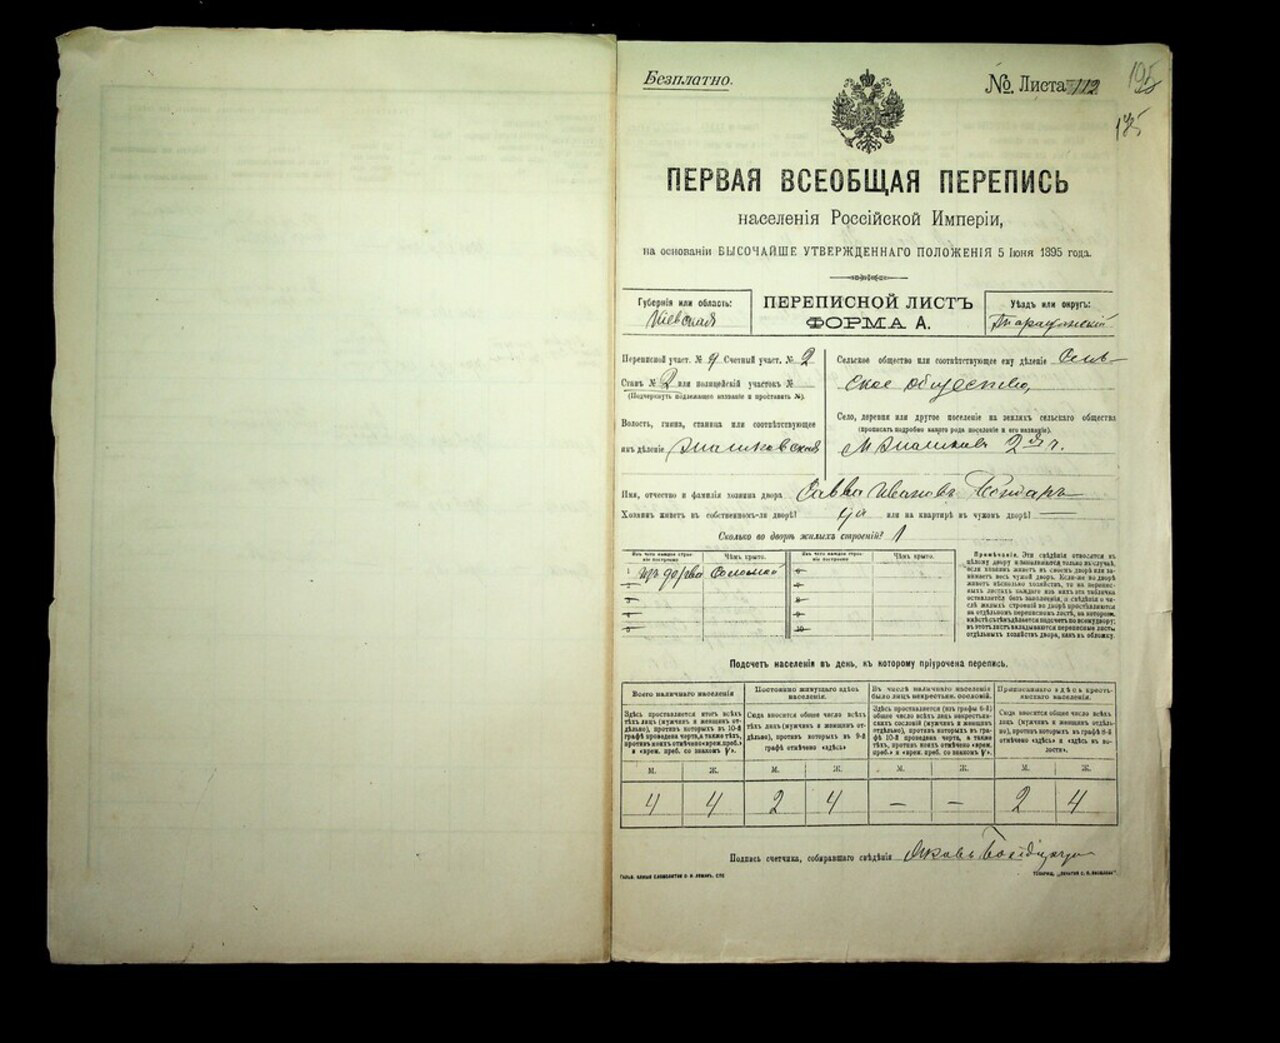 Безплатно.
№ Листа 112
195
175
ПЕРВАЯ ВСЕОБЩАЯ ПЕРЕПИСЬ
населенія Россійской Имперіи,
на основаніи ВЫСОЧАЙШЕ УТВЕРЖДЕННАГО ПОЛОЖЕНІЯ 5 Іюня 1895 года.
Губернія или область:
Кіевская
ПЕРЕПИСНОЙ ЛИСТЪ
ФОРМА А.
Уѣздъ или округъ:
Таращанскій
Переписной участ. № 9 Счетный участ. № 2
Станъ № 2 или полицейскій участокъ №
(Подчеркнуть подлежащее названіе и проставить №).
Волость, гмина, станица или соотвѣтствующее
имъ дѣленіе
Сельское общество или соотвѣтствующее ему дѣленіе Сель-
ское общество,
Село, деревня или другое поселеніе на земляхъ сельскаго общества
(прописать подробно какого рода поселеніе и его названіе).
2я ч.
Имя, отчество и фамилія хозяина двора Савва Ивановъ
Хозяинъ живетъ въ собственномъ-ли дворѣ? да или на квартирѣ въ чужомъ дворѣ? —
Сколько во дворѣ жилыхъ строеній? 1
Изъ чего каждое строеніе построено
Чѣмъ крыто.
Изъ чего каждое строеніе построено
Чѣмъ крыто.
1 изъ дерева Соломой
6
2
7
3
8
4
9
5
10
Примѣчаніе. Эти свѣдѣнія относятся къ
цѣлому двору и заполняются только въ случаѣ,
если хозяинъ живетъ въ своемъ дворѣ или за-
нимаетъ весь чужой дворъ. Если-же во дворѣ
живетъ нѣсколько хозяйствъ, то на перепис-
ныхъ листахъ каждаго изъ нихъ эта табличка
оставляется безъ заполненія, а свѣдѣнія о чи-
слѣ жилыхъ строеній во дворѣ проставляются
на отдѣльномъ переписномъ листѣ, на которомъ
вмѣстѣ съ тѣмъ дѣлается подсчетъ по всему двору;
въ этотъ листъ вкладываются переписные листы
отдѣльныхъ хозяйствъ двора, какъ въ обложку.
Подсчетъ населенія въ день, къ которому пріурочена перепись.
Всего наличнаго населенія
Постоянно живущаго здѣсь
населенія.
Въ числѣ наличнаго населенія
было лицъ некрестьян. сословій.
Приписаннаго здѣсь кресть-
янскаго населенія.
Здѣсь проставляется итогъ всѣхъ
тѣхъ лицъ (мужчинъ и женщинъ от-
дѣльно), противъ которыхъ въ 10-й
графѣ проведена черта, а также тѣхъ,
противъ коихъ отмѣчено «врем. преб.»
и «врем. преб. со знакомъ V».
Сюда вносится общее число всѣхъ
тѣхъ лицъ (мужчинъ и женщинъ от-
дѣльно), противъ которыхъ въ 9-й
графѣ отмѣчено «здѣсь»
Здѣсь проставляется (изъ графы 6-й)
общее число всѣхъ лицъ некрестьян-
скихъ сословій (мужчинъ и женщинъ
отдѣльно), противъ которыхъ въ гра-
фѣ 10-й проведена черта, а также
тѣхъ, противъ коихъ отмѣчено «врем.
преб.» и «врем. преб. со знакомъ V».
Сюда вносится общее число всѣхъ
лицъ (мужчинъ и женщинъ отдѣль-
но), противъ которыхъ въ графѣ 8-й
отмѣчено «здѣсь» и «здѣсь въ во-
лости».
М. Ж. М. Ж. М. Ж. М. Ж.
4 4 2 4 – – 2 4
Подпись счетчика, собиравшаго свѣдѣнія Яковъ